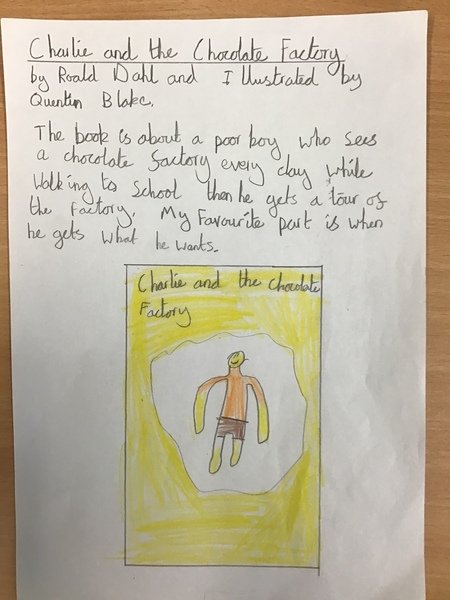 Charlie and the Chocolate Factory
by Roald Dahl and Illustrated by
Quentin Blake.
The book is about a poor boy who sees
a chocolate factory every day while
walking to school then he gets a tour of
the factory. My Favourite part is when
he gets what he wants.
Charlie and the Chocolate
Factory